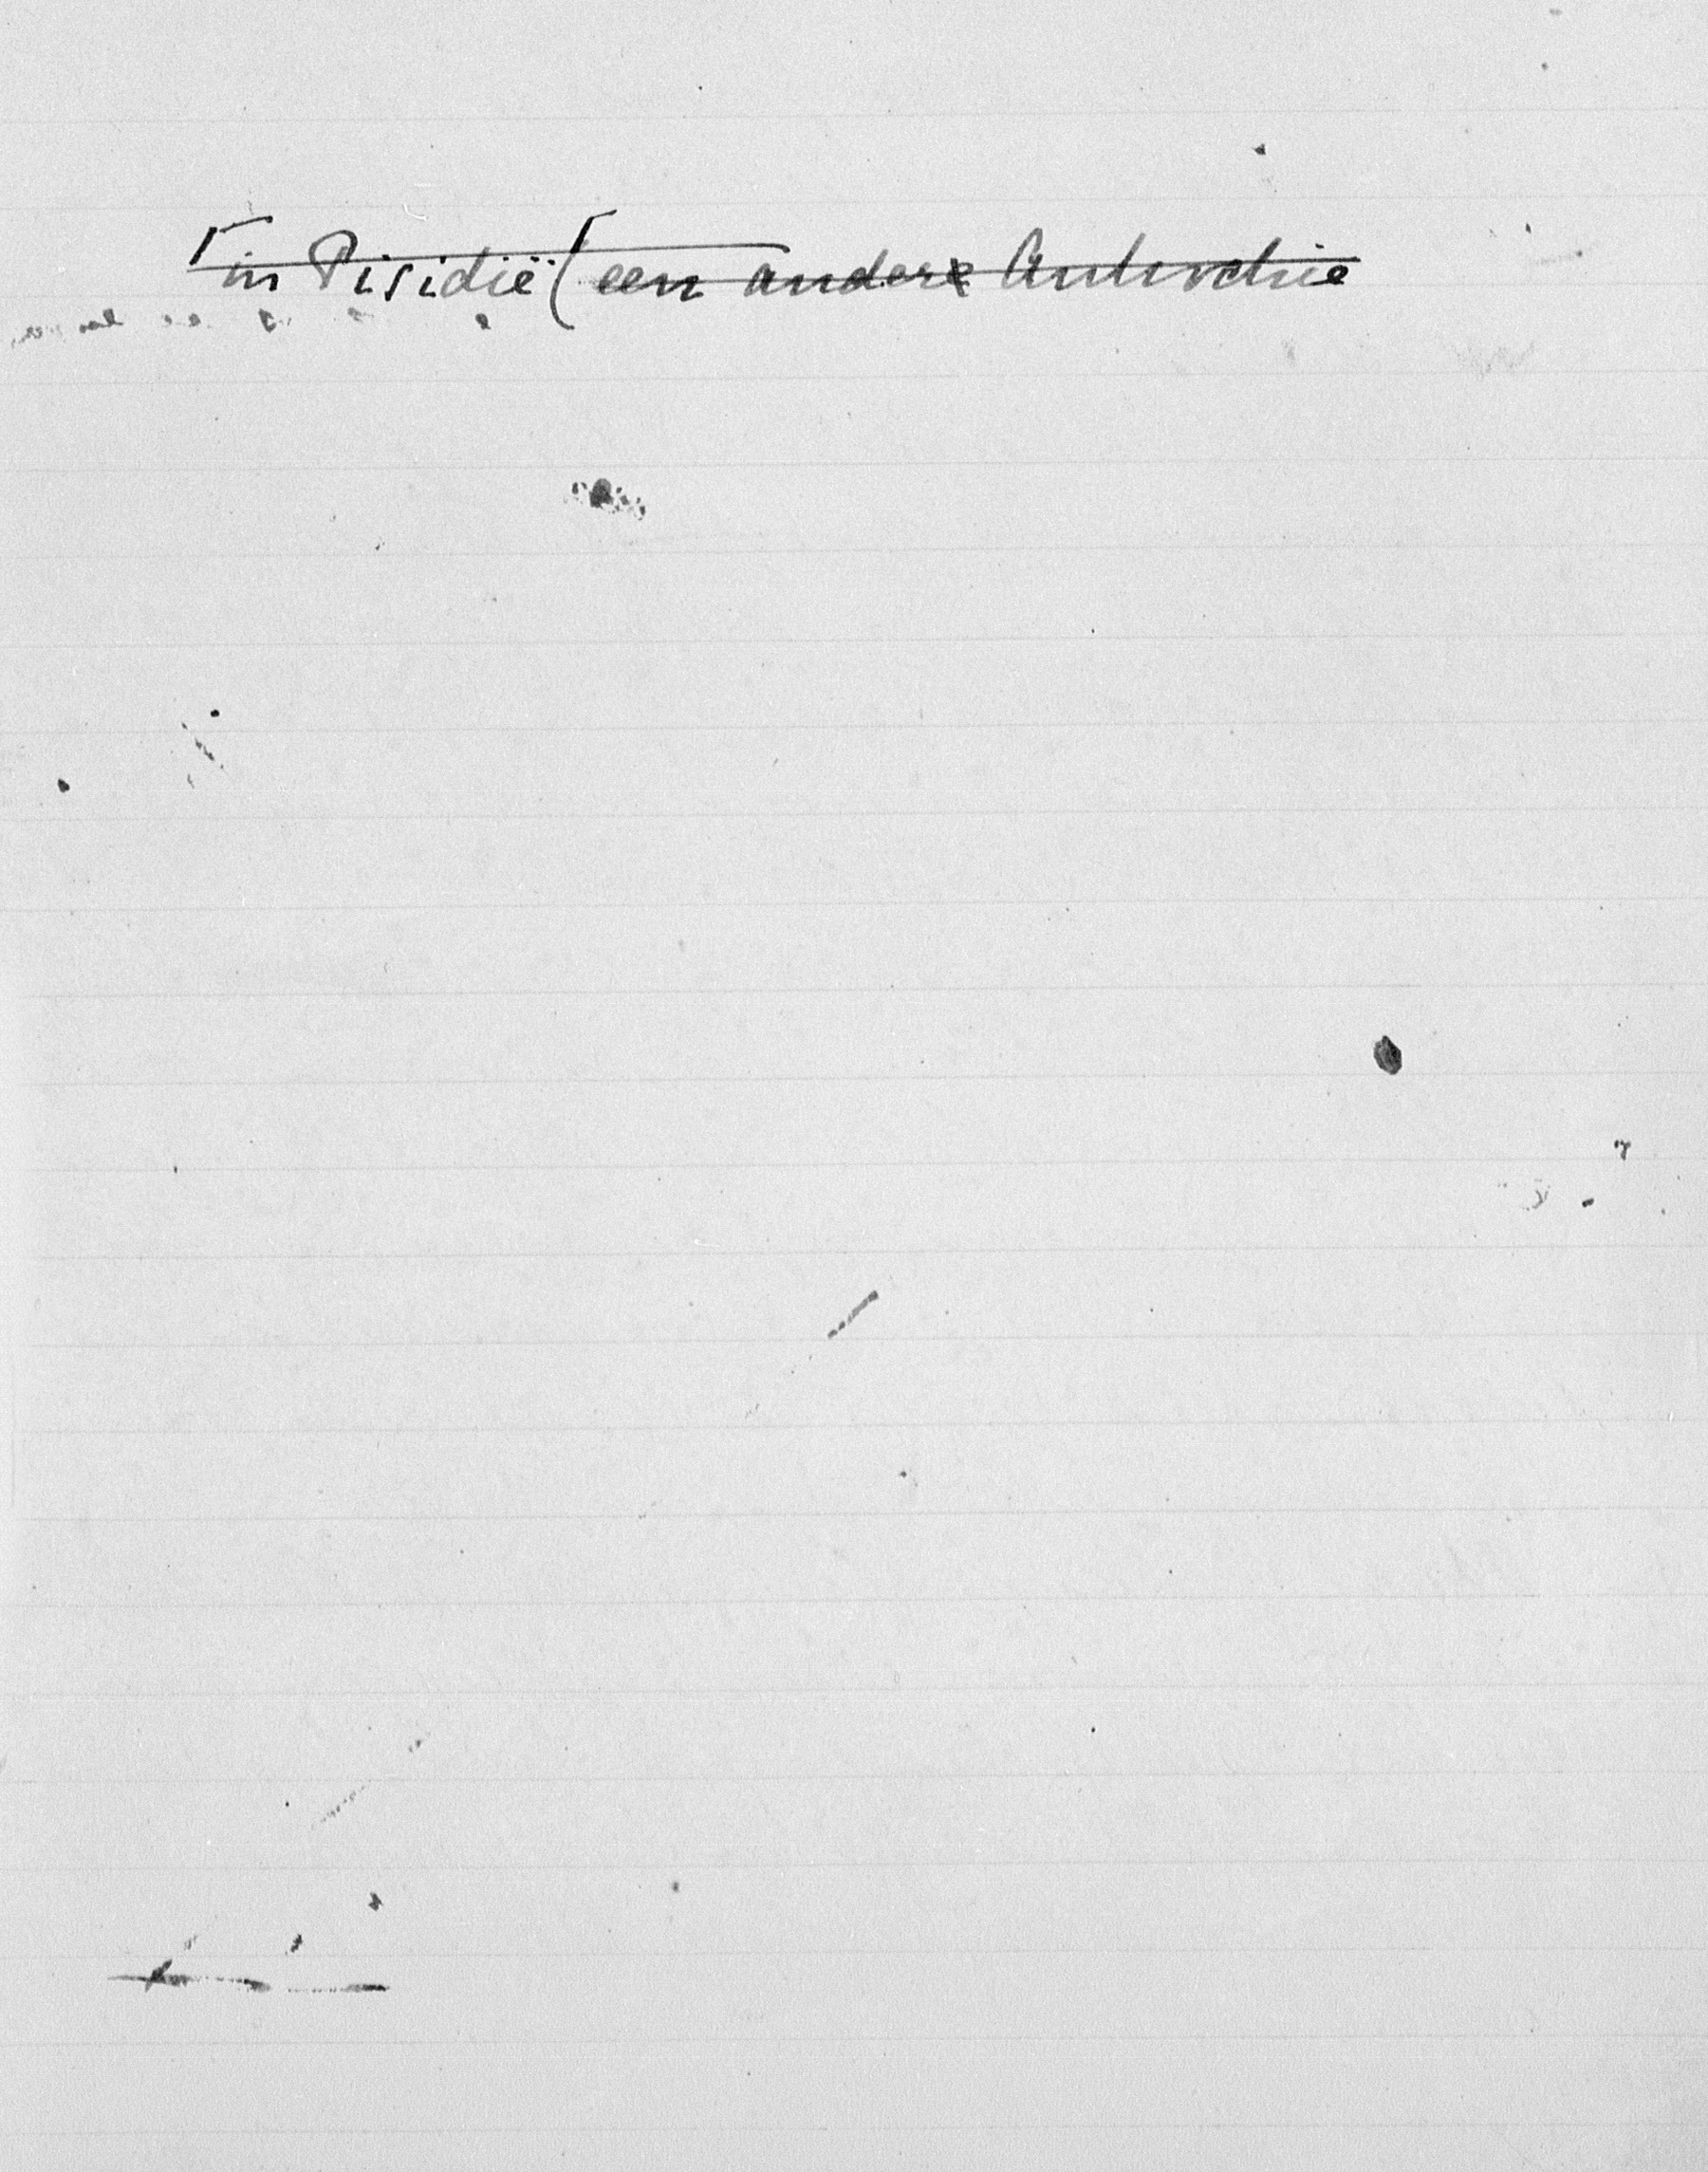 ┌in Pisidië (een ander Antiochie